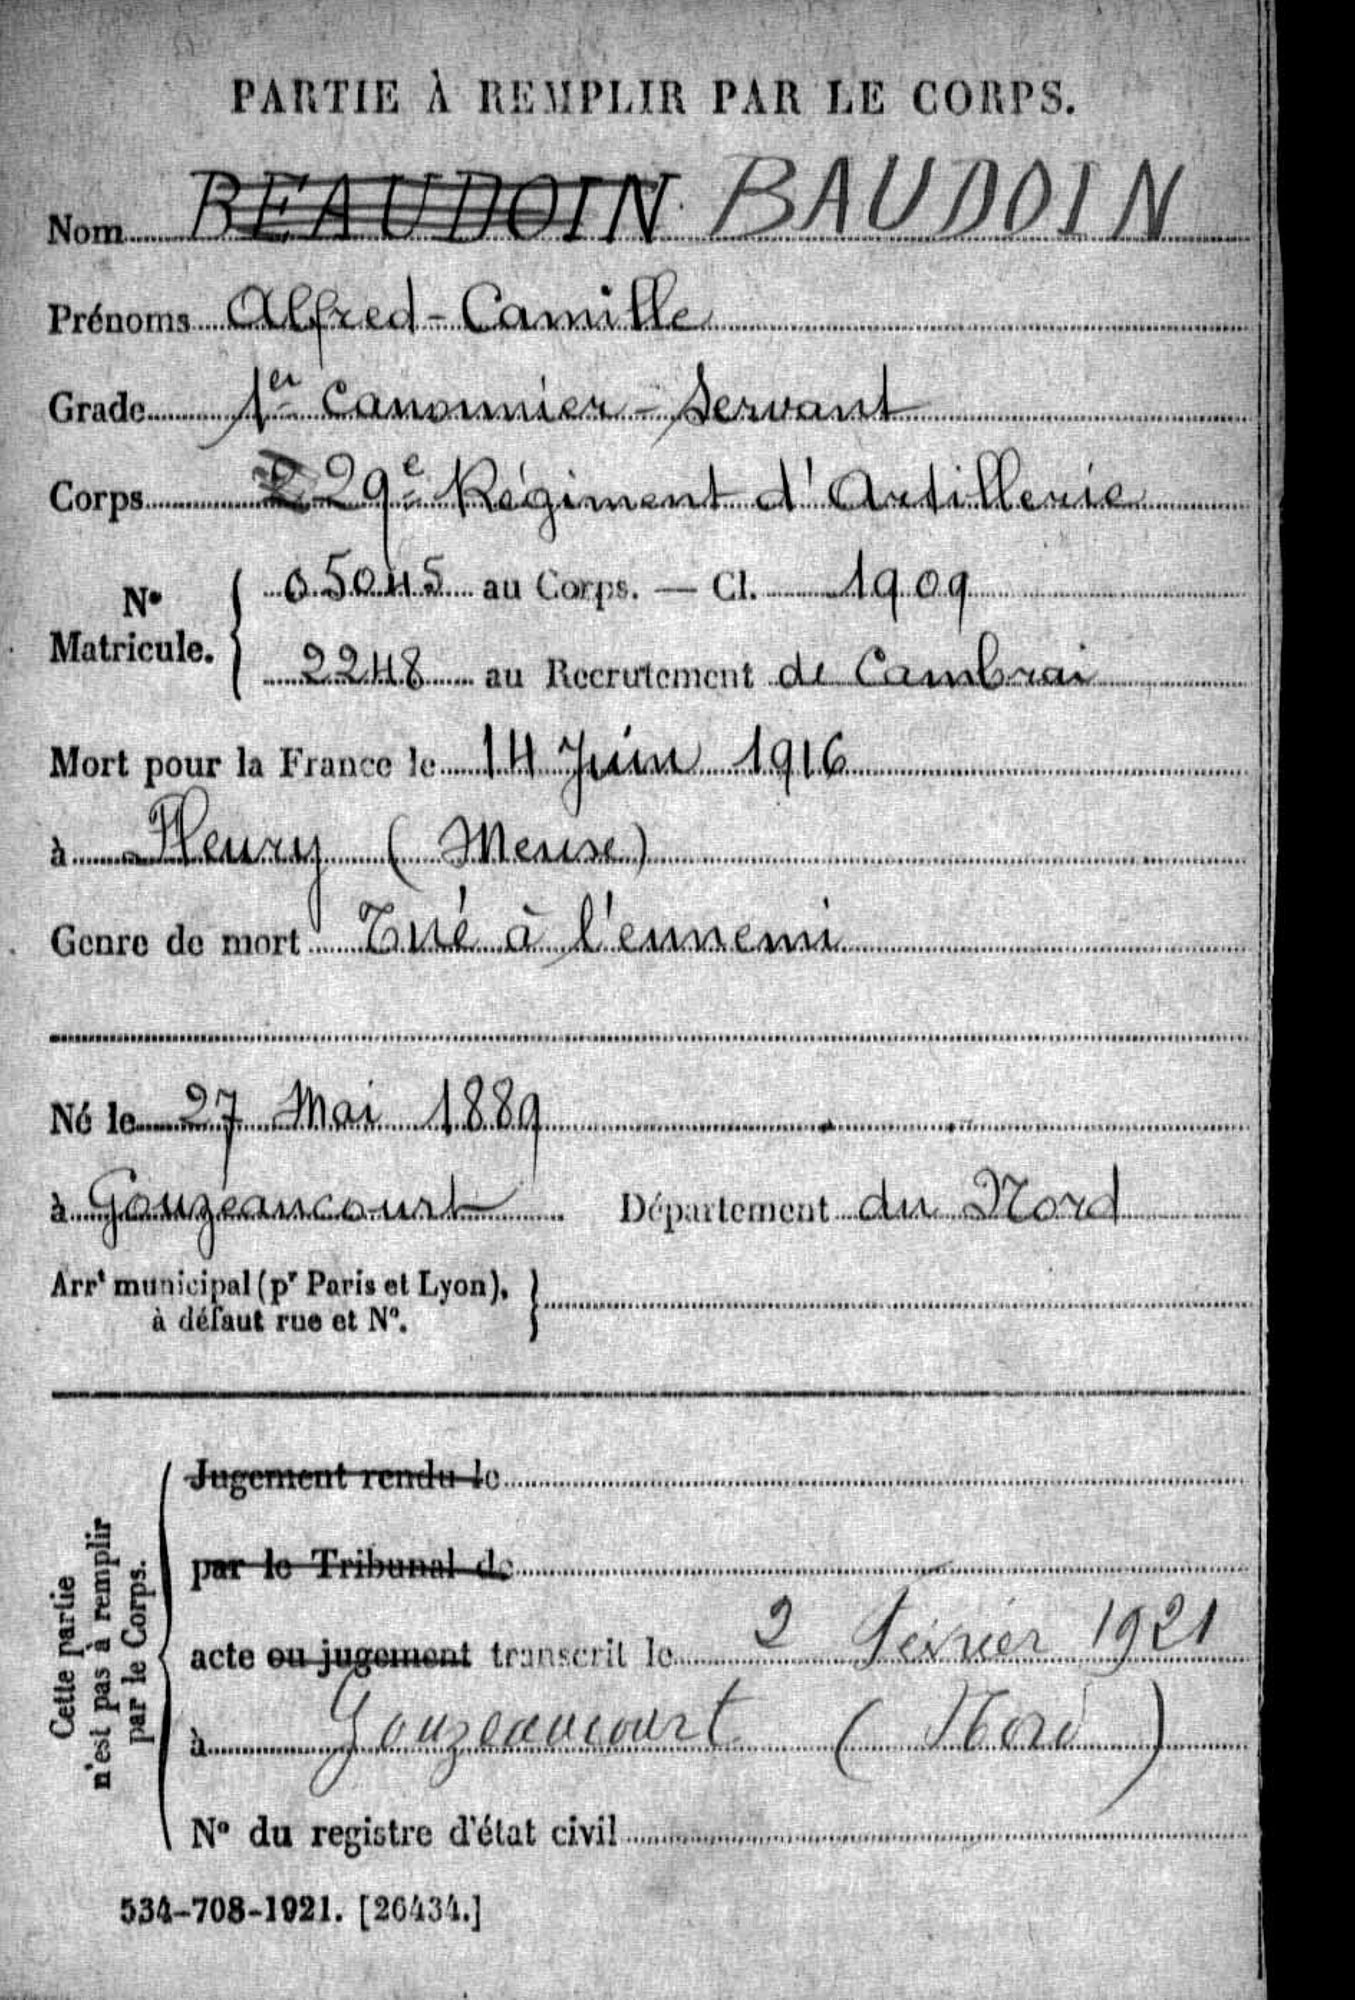 PARTIE À REMPLIR PAR LE CORPS.
Nom BEAUDOIN BAUDOIN
Prénoms Alfred-Camille
Grade 1er Canonnier-Servant
Corps 29e Régiment d'Artillerie
No Matricule. { 05045 au Corps. — Cl. 1909
2248 au Recrutement de Cambrai
Mort pour la France le 14 Juin 1916
à Fleury (Meuse)
Genre de mort Tué à l'ennemi
Né le 27 Mai 1889
à Gouzeaucourt Département du Nord
Arrt municipal (pr Paris et Lyon), }
à défaut rue et No.
Cette partie
n'est pas à remplir
par le Corps.
Jugement rendu le
par le Tribunal de
acte ou jugement transcrit le 2 Février 1921
à Gouzeaucourt (Nord)
No du registre d'état civil
534-708-1921. [26434.]